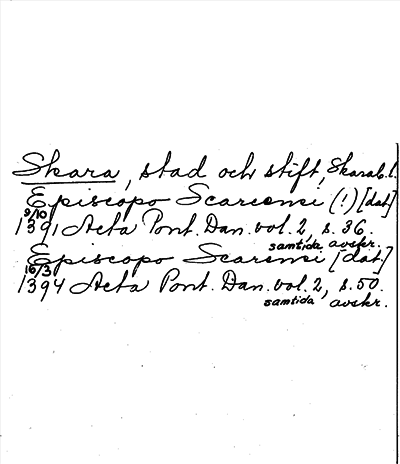 Skara, stad och stift, Skarab.l.
Episcopo Scarcensi (!) [dat]
9/10
1391 Acta Pont. Dan. vol. 2, s. 36.
samtida avskr.
Episcopo Scarensi [dat.]
16/3
1394 Acta Pont. Dan. vol. 2, s. 50.
samtida avskr.